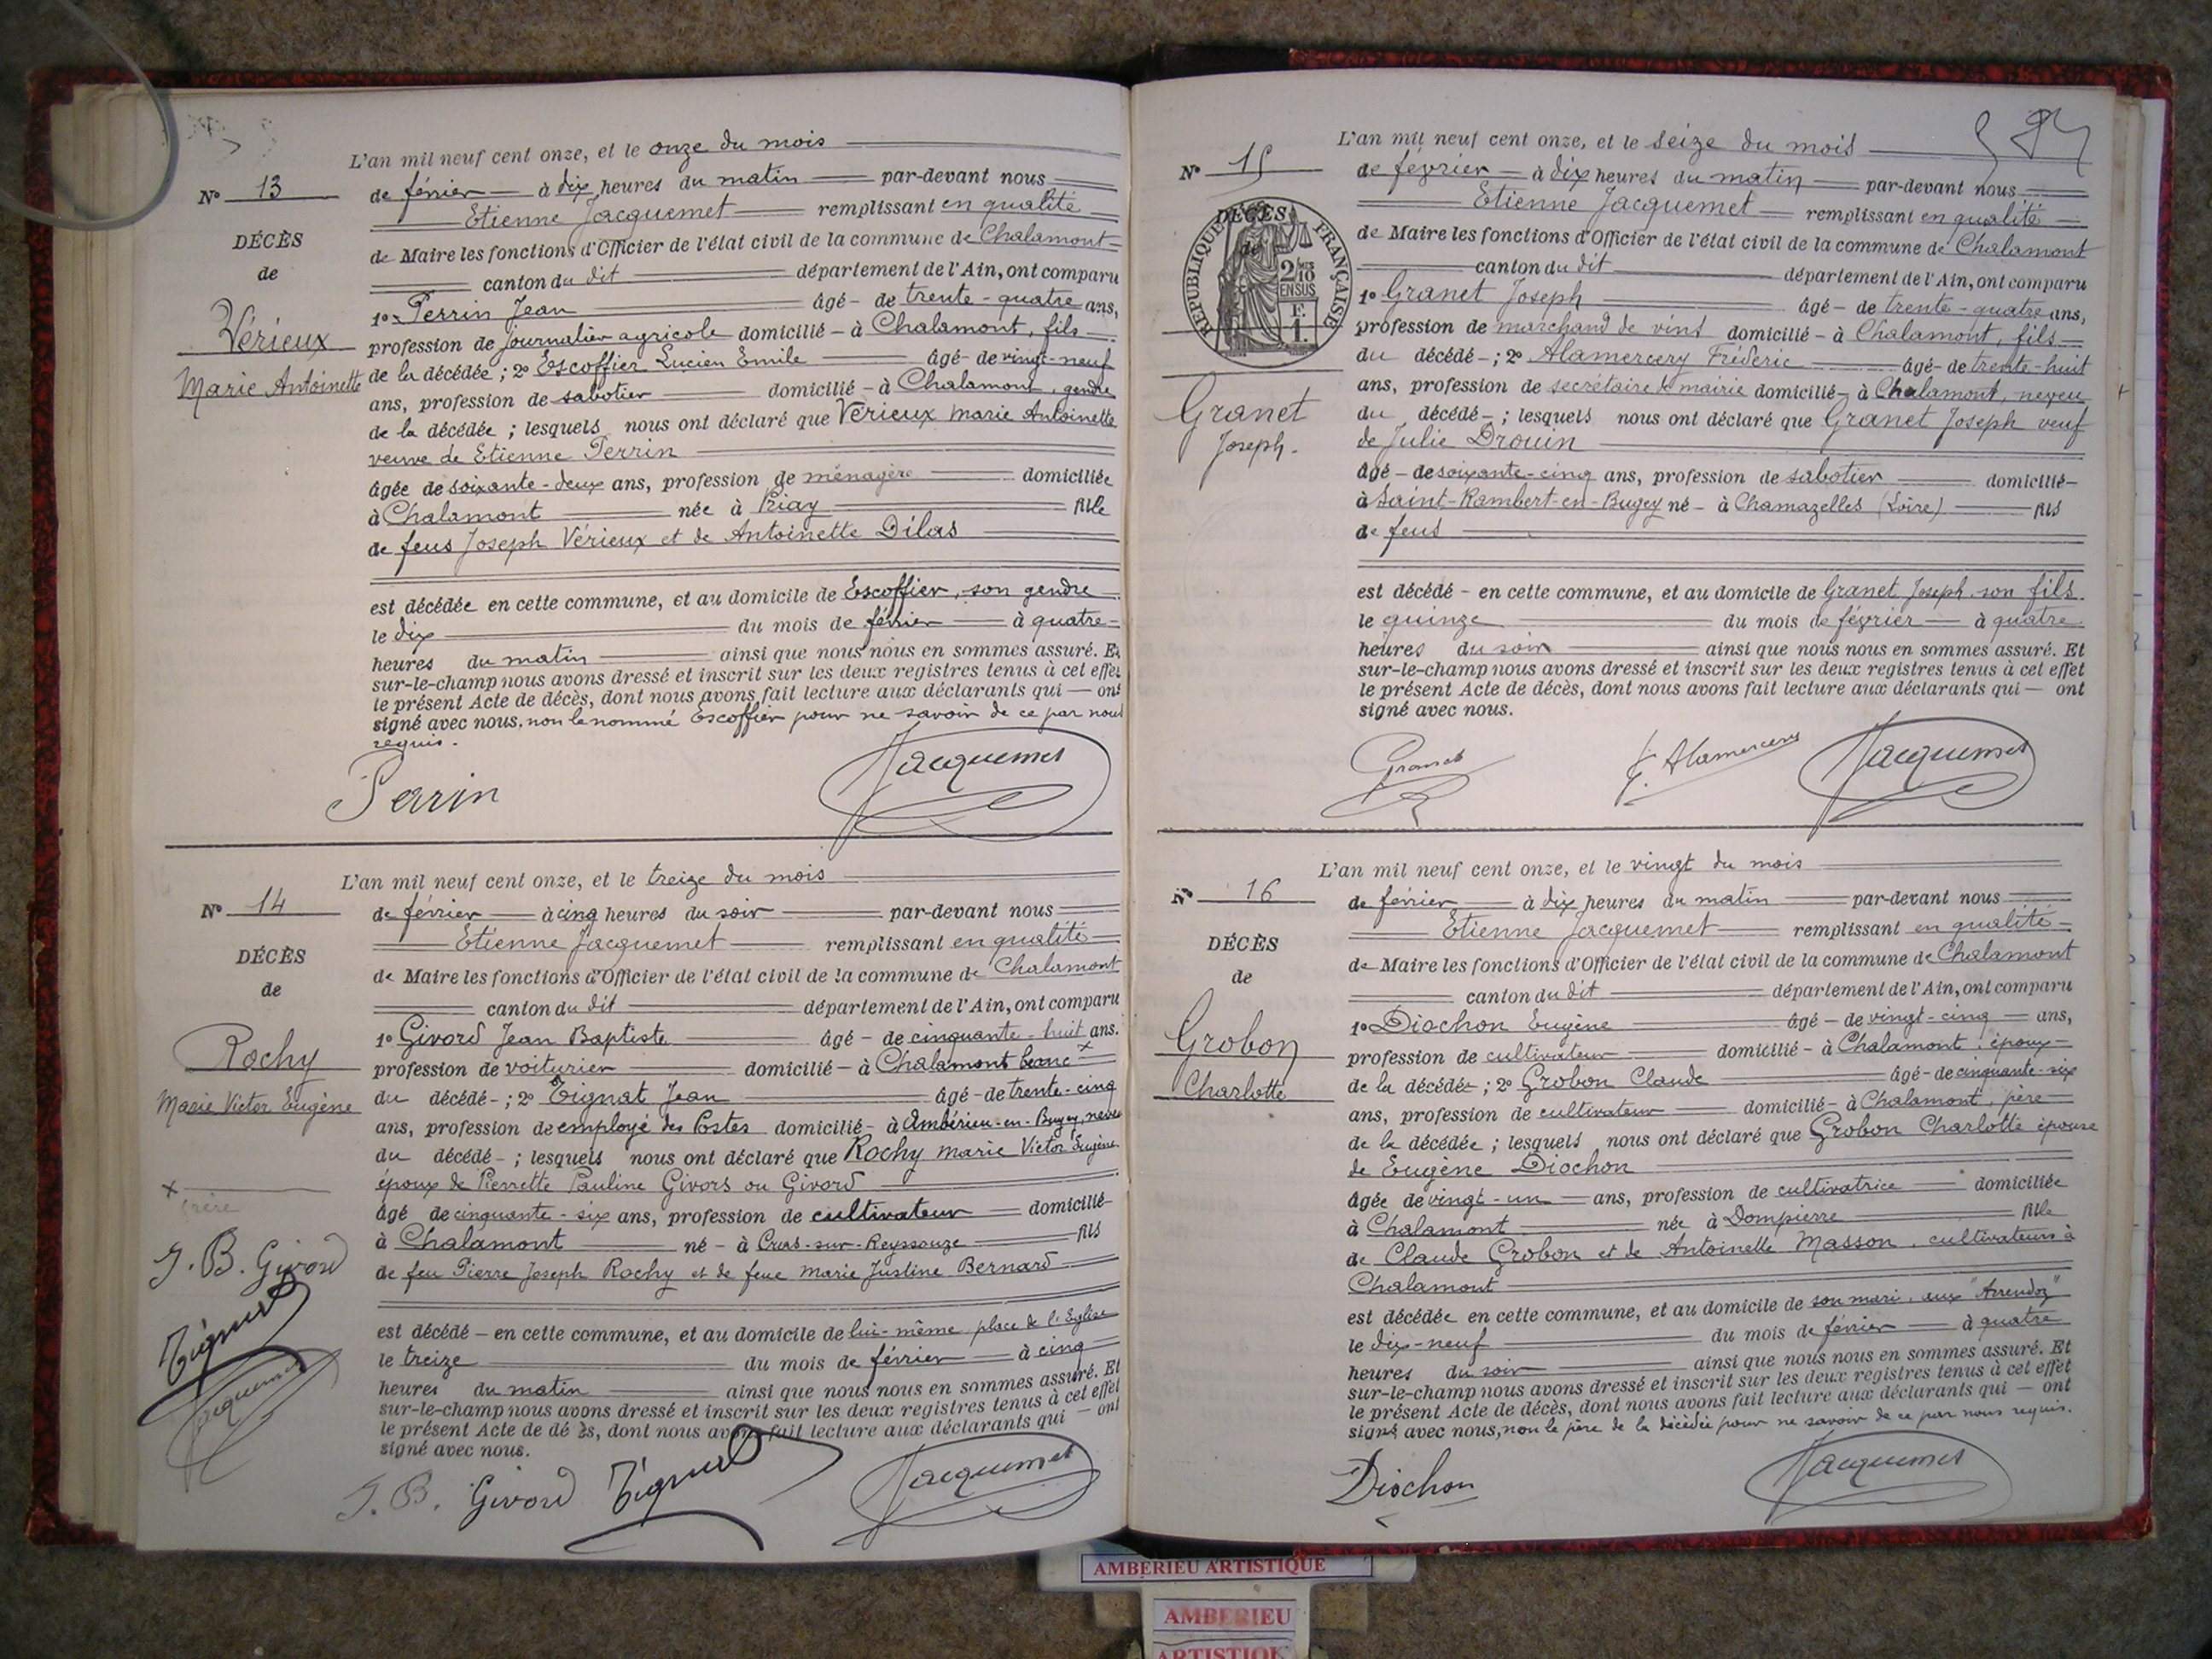 L'an mil neuf cent onze, et le onze du mois
N° 13
de février à dix heures du matin par-devant nous
Etienne Jacquemet remplissant en qualité
DÉCÈS
de
de Maire les fonctions d'Officier de l'état civil de la commune de Chalamont
canton du dit département de l'Ain, ont comparu
1° Perrin Jean âgé de trente-quatre ans,
Vérieux
Marie Antoinette
profession de journalier agricole domicilié à Chalamont, fils
de la décédée ; 2° Escoffier Lucien Emile âgé de vingt-neuf
ans, profession de sabotier domicilié à Chalamont, gendre
de la décédée ; lesquels nous ont déclaré que Vérieux Marie Antoinette
veuve de Etienne Perrin
âgée de soixante-deux ans, profession de ménagère domiciliée
à Chalamont née à Priay fille
de feus Joseph Vérieux et de Antoinette Dilas
est décédée en cette commune, et au domicile de Escoffier, son gendre
le dix du mois de février à quatre
heures du matin ainsi que nous nous en sommes assuré. Et
sur-le-champ nous avons dressé et inscrit sur les deux registres tenus à cet effet
le présent Acte de décès, dont nous avons fait lecture aux déclarants qui ont
signé avec nous, non le nommé Escoffier pour ne savoir de ce par nous
requis.
Perrin Jacquemet
L'an mil neuf cent onze, et le treize du mois
N° 14
de février à cinq heures du soir par-devant nous
Etienne Jacquemet remplissant en qualité
DÉCÈS
de
de Maire les fonctions d'Officier de l'état civil de la commune de Chalamont
canton du dit département de l'Ain, ont comparu
1° Givord Jean Baptiste âgé de cinquante-huit ans.
Rochy
Marie Victor Eugène
profession de voiturier domicilié à Chalamont beau x
du décédé ; 2° Tignat Jean âgé de trente-cinq
ans, profession de employé des Postes domicilié à Ambérieu-en-Bugey, neveu
du décédé ; lesquels nous ont déclaré que Rochy Marie Victor Eugène
époux de Pierrette Pauline Givors ou Givord
x frère
J. B. Givord
Jacquemet
âgé de cinquante-six ans, profession de cultivateur domicilié
à Chalamont né à Cras-sur-Reyssouze fils
de feu Pierre Joseph Rochy et de feue Marie Justine Bernard
est décédé en cette commune, et au domicile de lui-même place de l'Eglise
le treize du mois de février à cinq
heures du matin ainsi que nous nous en sommes assuré. Et
sur-le-champ nous avons dressé et inscrit sur les deux registres tenus à cet effet
le présent Acte de décès, dont nous avons fait lecture aux déclarants qui ont
signé avec nous.
J. B. Givord Jacquemet
L'an mil neuf cent onze, et le seize du mois
N° 15
de février à dix heures du matin par-devant nous
Etienne Jacquemet remplissant en qualité
DÉCÈS
de
RÉPUBLIQUE FRANÇAISE
2/10
EN SUS
de Maire les fonctions d'Officier de l'état civil de la commune de Chalamont
canton du dit département de l'Ain, ont comparu
1° Granet Joseph âgé de trente-quatre ans,
profession de marchand de vins domicilié à Chalamont, fils
du décédé ; 2° Alamercery Fréderic âgé de trente-huit
ans, profession de secrétaire de mairie domicilié à Chalamont, neveu
Granet
Joseph.
du décédé ; lesquels nous ont déclaré que Granet Joseph veuf
de Julie Drouin
âgé de soixante-cinq ans, profession de sabotier domicilié
à Saint-Rambert-en-Bugey né à Chamazelles (Loire) fils
de feus
est décédé en cette commune, et au domicile de Granet Joseph, son fils.
le quinze du mois de février à quatre
heures du soir ainsi que nous nous en sommes assuré. Et
sur-le-champ nous avons dressé et inscrit sur les deux registres tenus à cet effet
le présent Acte de décès, dont nous avons fait lecture aux déclarants qui ont
signé avec nous.
Granet F. Alamercery Jacquemet
L'an mil neuf cent onze, et le vingt du mois
N° 16
de février à dix heures du matin par-devant nous
Etienne Jacquemet remplissant en qualité
DÉCÈS
de
de Maire les fonctions d'Officier de l'état civil de la commune de Chalamont
canton du dit département de l'Ain, ont comparu
1° Diochon Eugène âgé de vingt-cinq ans,
Grobon
Charlotte
profession de cultivateur domicilié à Chalamont, époux
de la décédée ; 2° Grobon Claude âgé de cinquante-six
ans, profession de cultivateur domicilié à Chalamont, père
de la décédée ; lesquels nous ont déclaré que Grobon Charlotte épouse
de Eugène Diochon
âgée de vingt-un ans, profession de cultivatrice domiciliée
à Chalamont née à Dompierre fille
de Claude Grobon et de Antoinette Masson, cultivateurs à
Chalamont
est décédée en cette commune, et au domicile de son mari, aux
le dix-neuf du mois de février à quatre
heures du soir ainsi que nous nous en sommes assuré. Et
sur-le-champ nous avons dressé et inscrit sur les deux registres tenus à cet effet
le présent Acte de décès, dont nous avons fait lecture aux déclarants qui ont
signé avec nous, non le père de la décédée pour ne savoir de ce par nous requis.
Diochon Jacquemet
AMBERIEU ARTISTIQUE
AMBERIEU